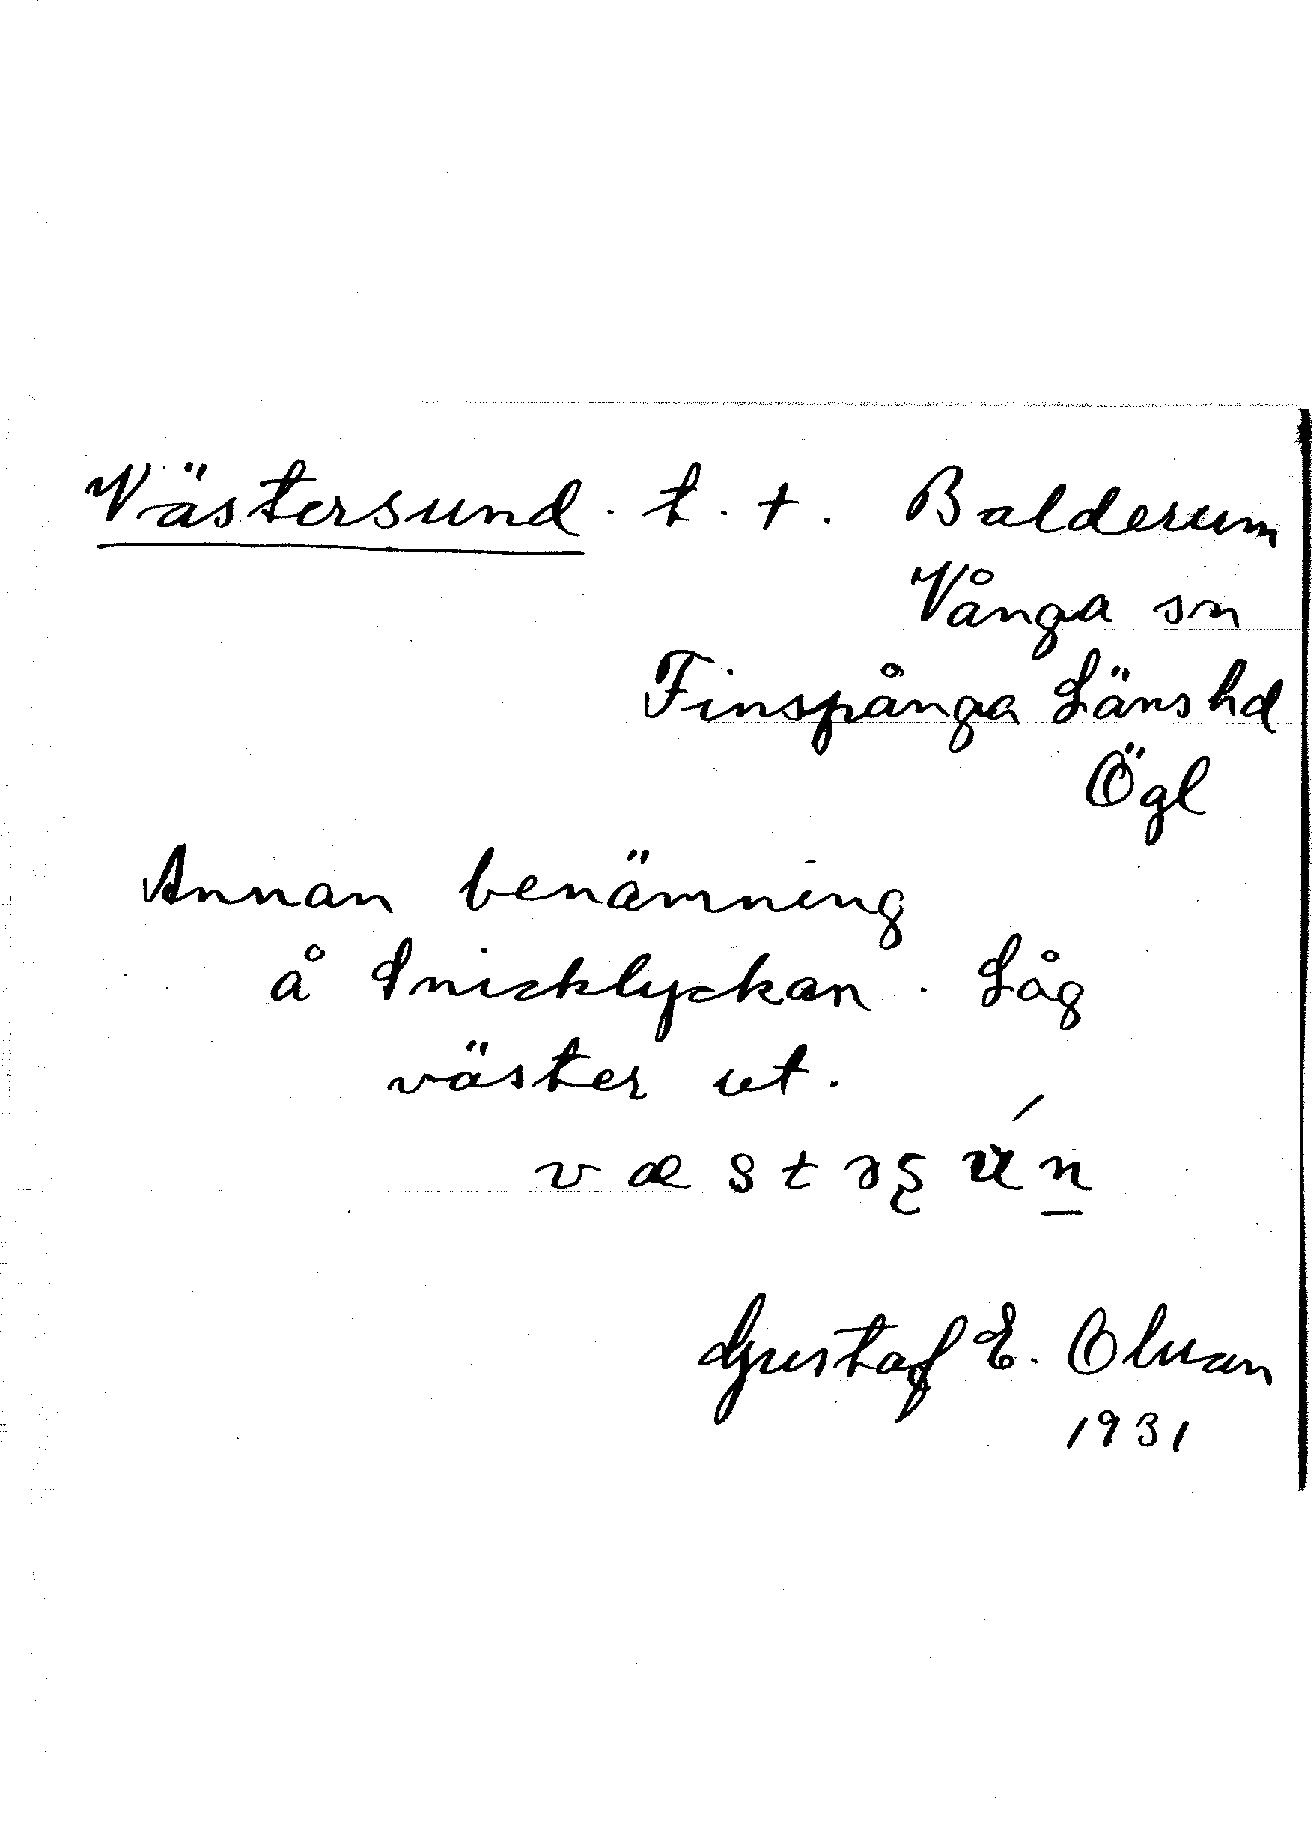 Västersund. t. +. Balderum
Vånga sn
Finspånga Länshd
Ögl
Annan benämning
å Snicklyckan. Låg
väster ut.
Gustaf E. Olsson
1931